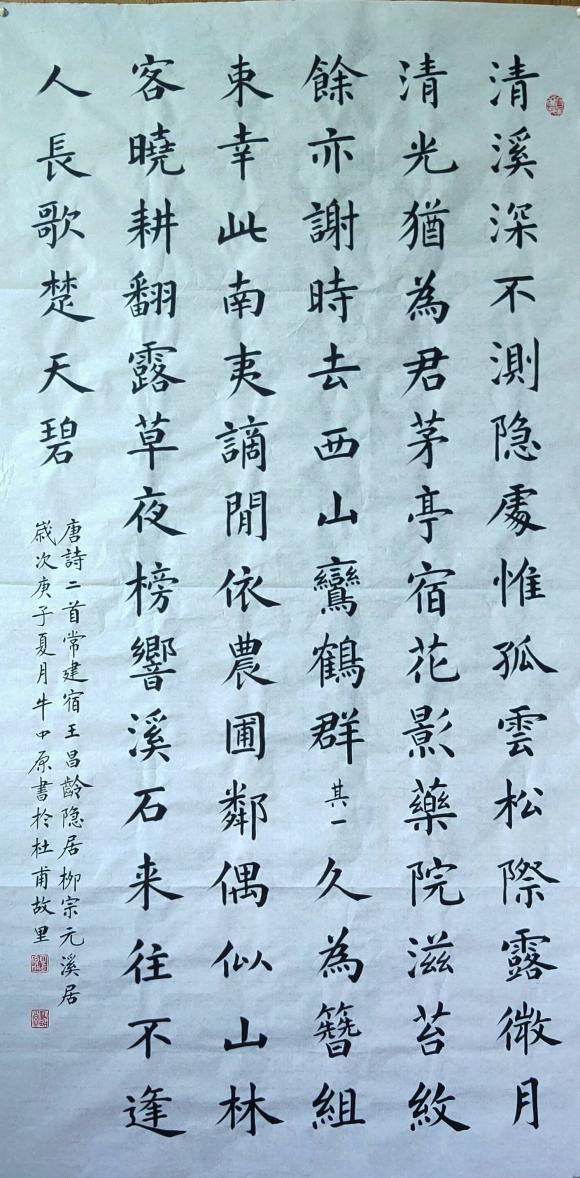 清溪深不測隐處惟孤雲松際露微月
清光猶為君茅亭宿花影藥院滋苔紋
餘亦謝時去西山鸞鶴群其一久為簪組
束幸此南夷謫閒依農圃鄰偶似山林
客曉耕翻露草夜榜響溪石来往不逢
人長歌楚天碧
唐詩二首常建宿王昌齡隐居柳宗元溪居
歲次庚子夏月牛中原書於杜甫故里